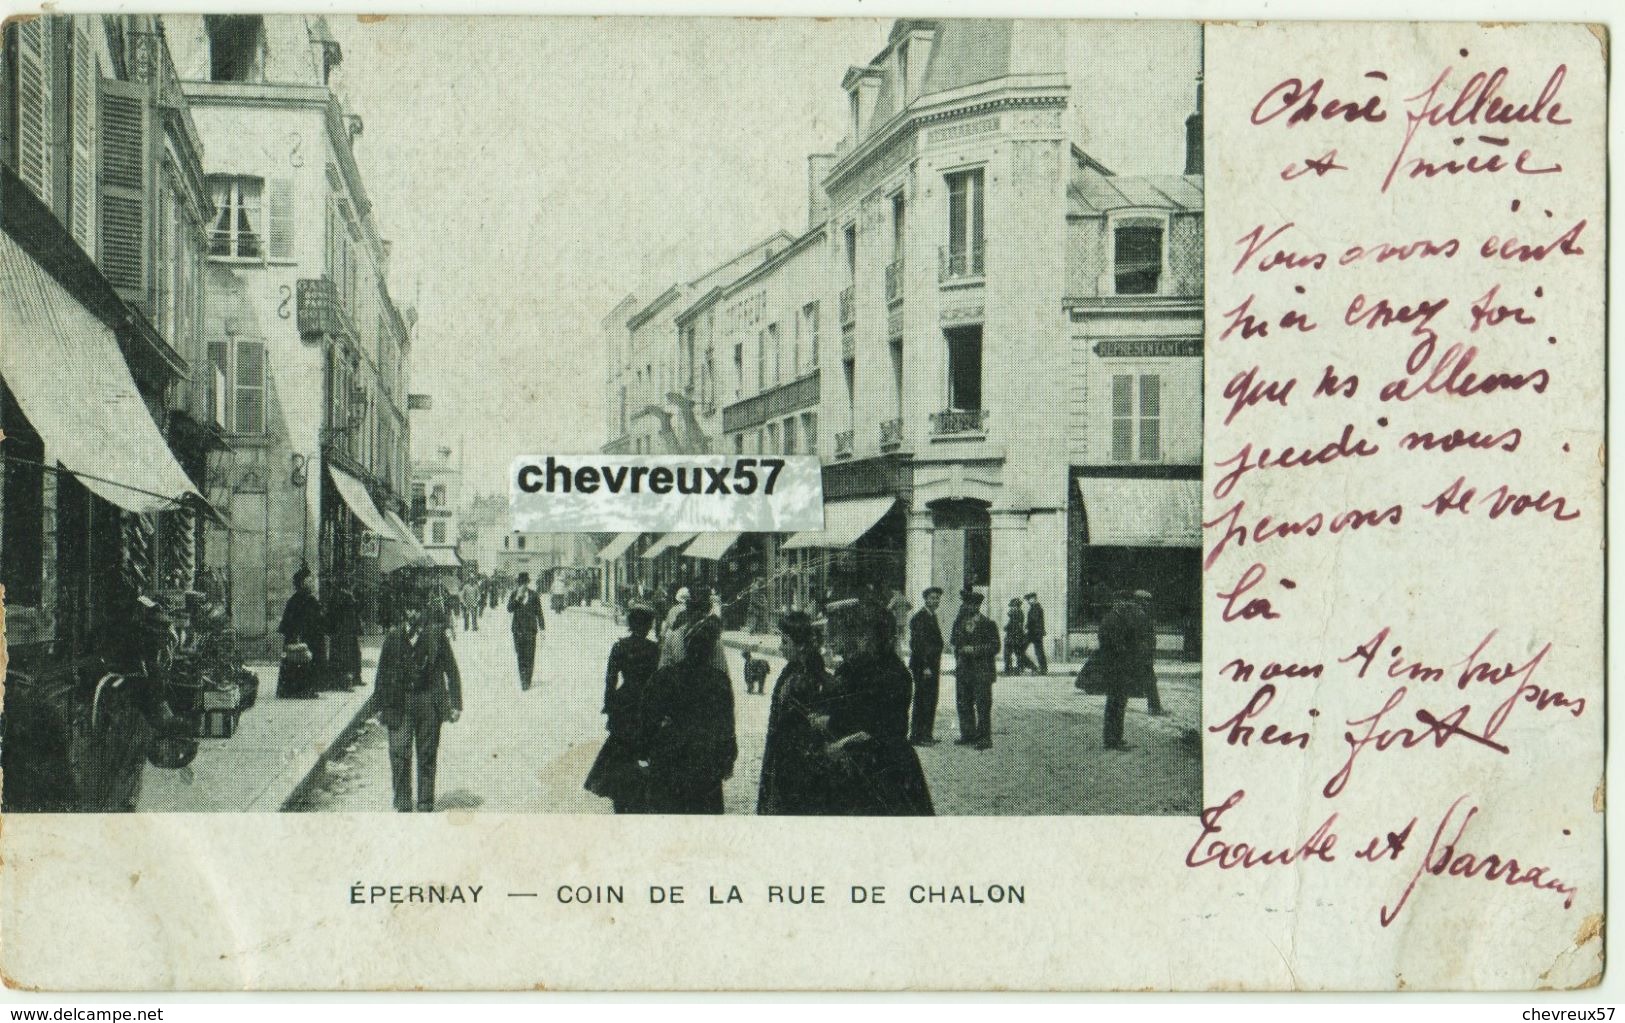 Chère filleule
et nièce
Vous avons écrit
hier chez toi
que ns allions
jeudi nous
pensons te voir
là
nous t'embrassons
bien fort
Tante et Parrain
REPRESENTANT
chevreux57
ÉPERNAY — COIN DE LA RUE DE CHALON
www.delcampe.net
chevreux57